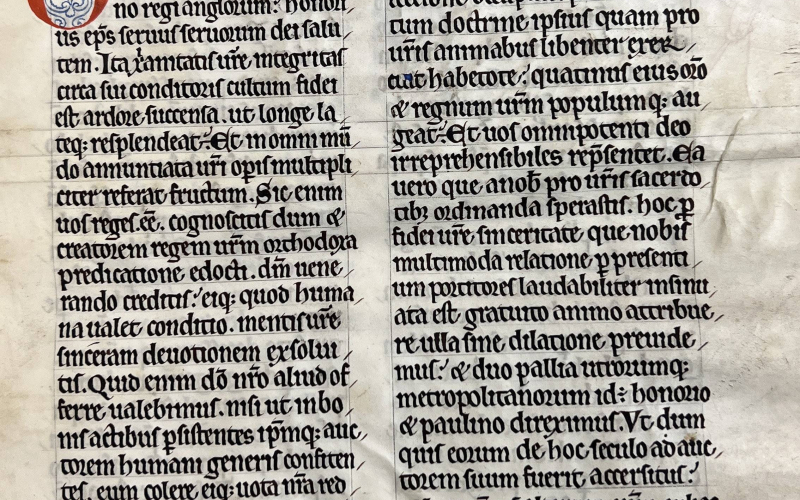 no regi anglorum: honori,
us ep̄s seruus seruorum dei salu
tem. Ita xp̄ianitatis ur̄e integritas
circa sui conditoris cultum fidei
est ardore succensa. ut longe la,
teq; resplendeat: Et in omni mū,
do annuntiata ur̄i op̄is multipli,
citer referat fructum. Sic enim
uos reges .ēē. cognoscitis dum &
creatorem regem ur̄m orthodoxa
predicatione edocti. dm̄ uene,
rando creditis: eiq; quod huma,
na ualet conditio. mentis ur̄e
sinceram deuotionem exsolui,
tis. Quid enim dō nr̄o aliud of,
ferre ualebimus. nisi ut in bo,
nis actibus ꝑsistentes ip̄mq; auc,
torem humani generis confiten,
tes. eum colere eiq; uota nr̄a red
tum doctrine ipsius quam pro
ur̄is animabus libenter exer,
cuit habetote: quatinus eius orō
& regnum ur̄m populumq; au,
geat: Et uos omnipotenti deo
irreprehensibiles rep̄sentet. Ea
uero que a nob̄ pro ur̄is sacerdo,
tibꝫ ordinanda sperastis. hoc ꝑ
fidei ur̄e sinceritate que nobis
multimoda relatione ꝑ presenti,
um portitores laudabiliter insinu,
ata est gratuito animo attribue,
re ulla sine dilatione preuide,
mus: & duo pallia utrorumq;
metropolitanorum id: honorio
& paulino direximus. Vt dum
quis eorum de hoc seculo ad auc,
torem suum fuerit accersitus: